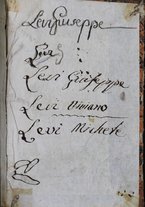 Levi Giuseppe
Levi Giuseppe
Levi Viviano
Levi Michele